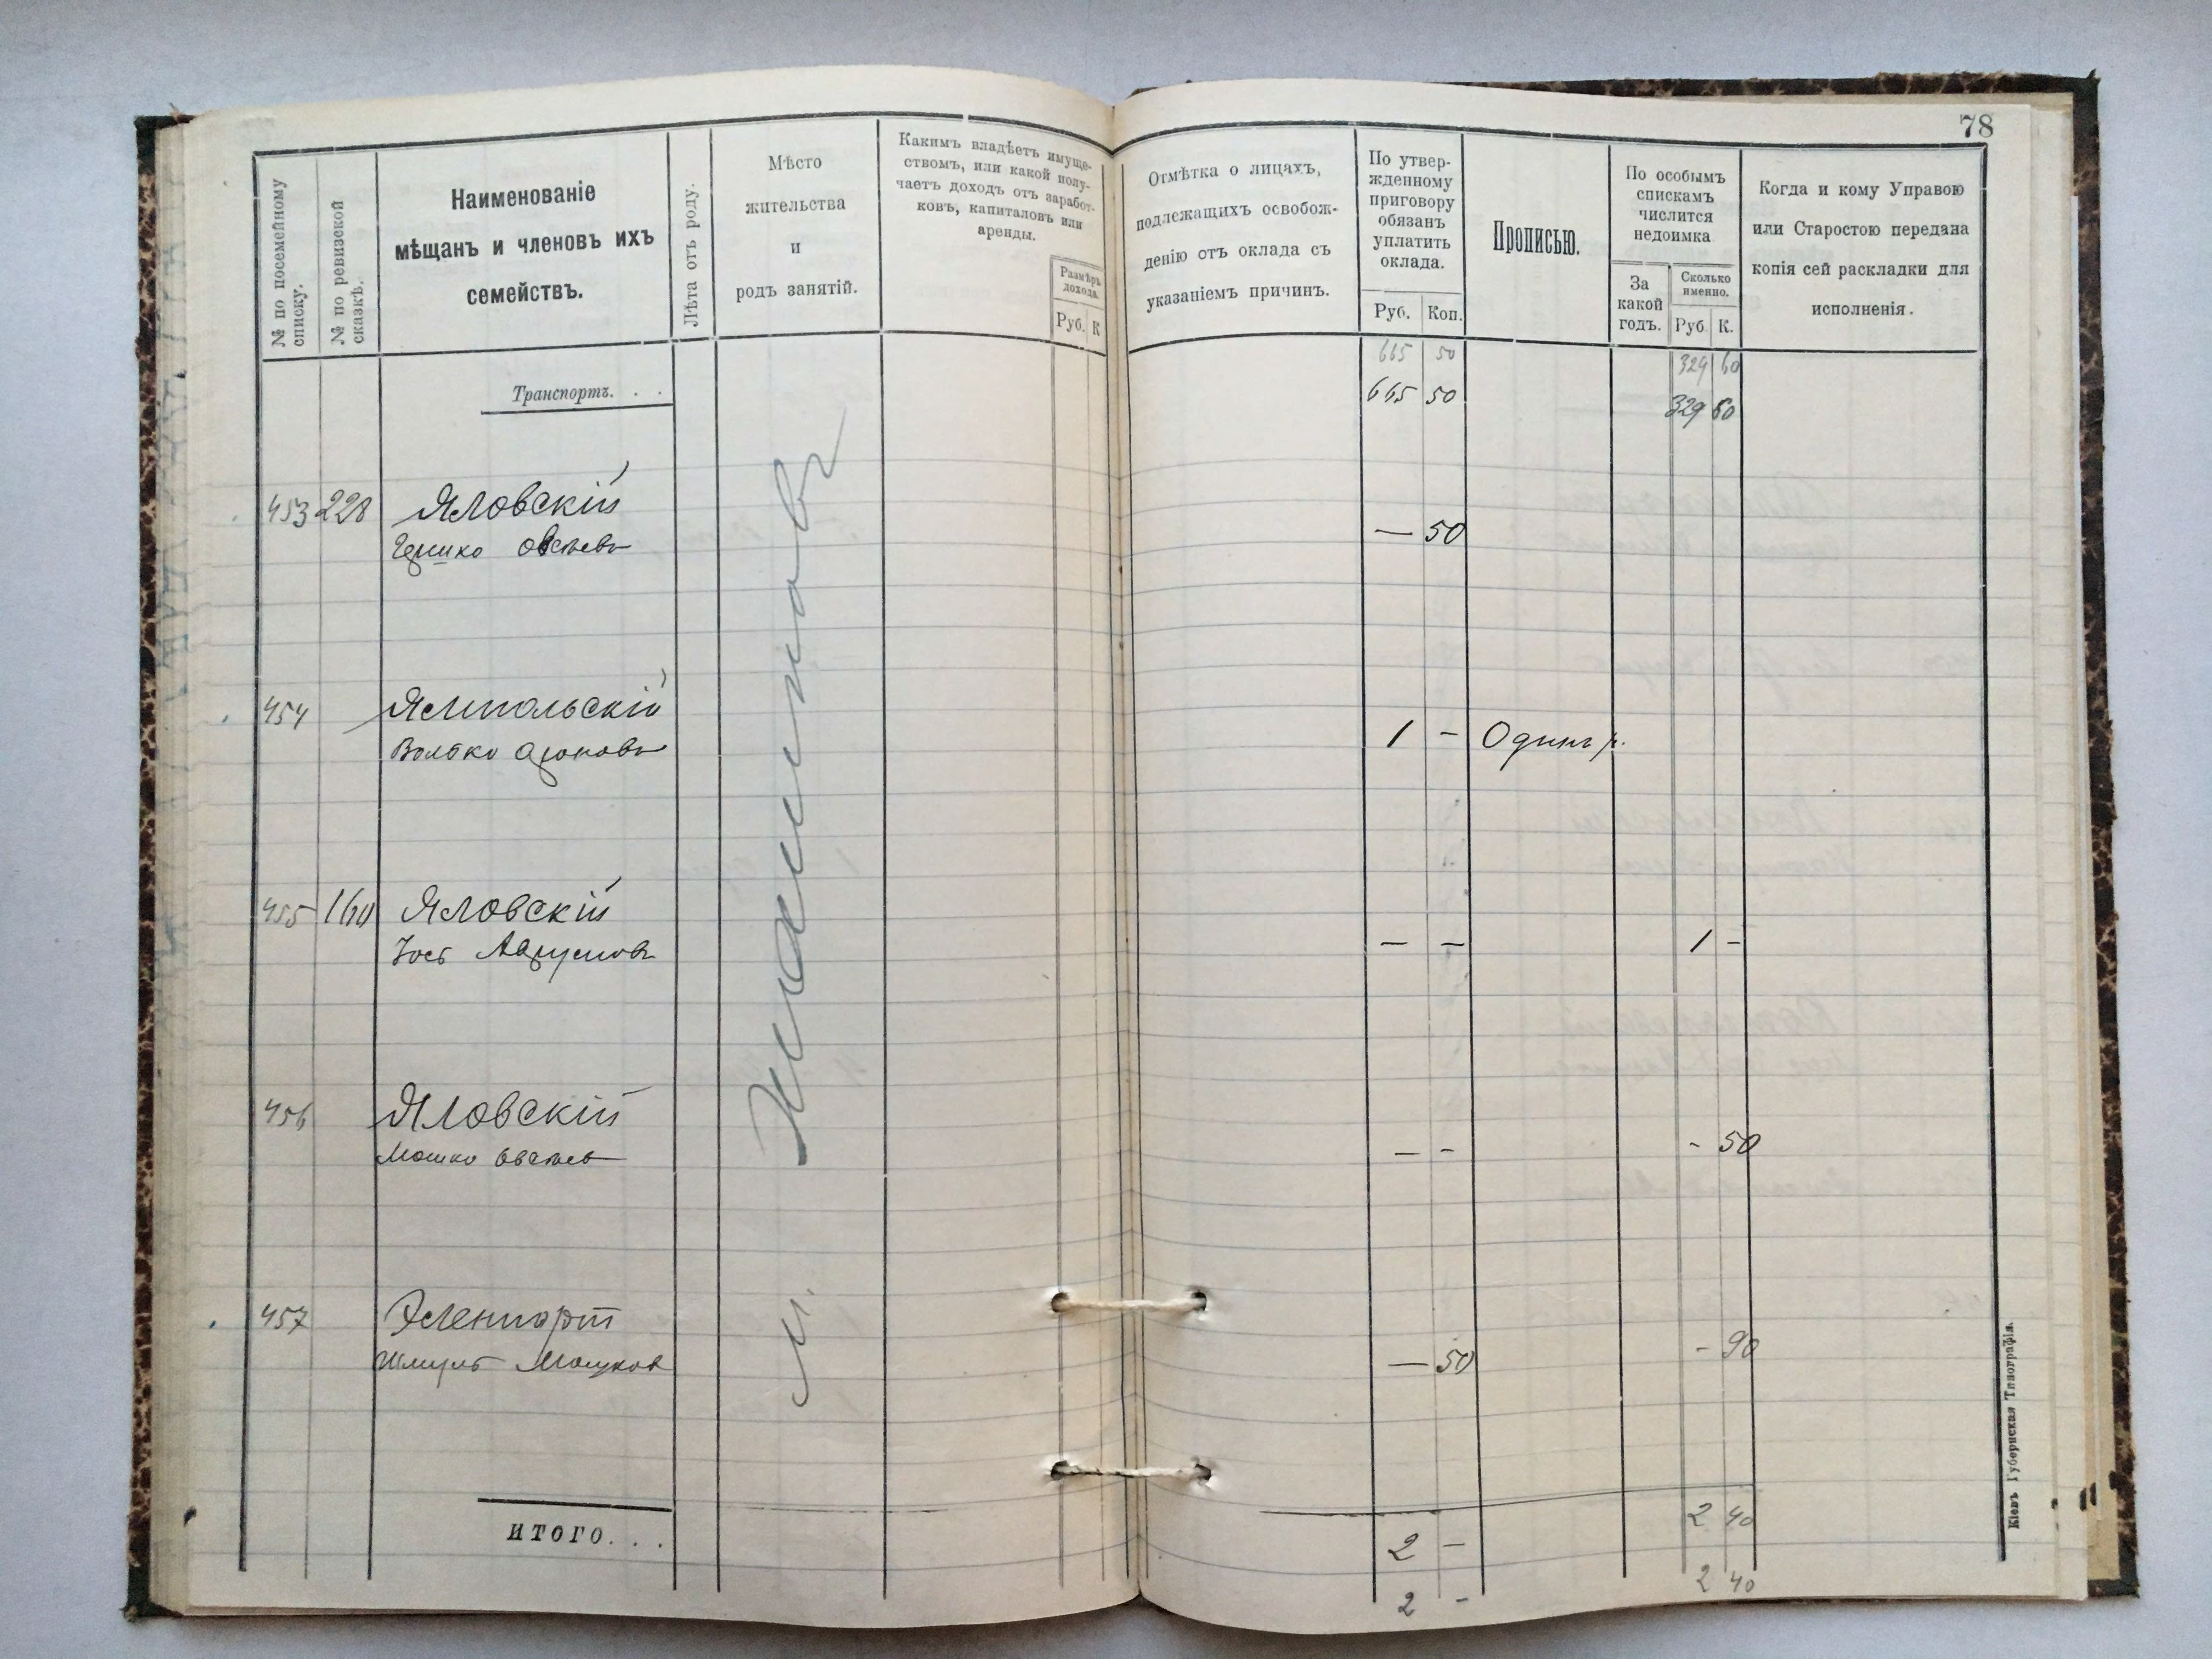 78
№ по посемейному списку.
№ по ревизской сказкѣ.
Наименованіе
мѣщанъ и членовъ ихъ
семействъ.
Лѣта отъ роду.
Мѣсто
жительства
и
родъ занятій.
Какимъ владѣетъ имуще-
ствомъ, или какой полу-
чаетъ доходъ отъ заработ-
ковъ, капиталовъ или
аренды.
Размѣръ
дохода.
Руб. К
Отмѣтка о лицахъ,
подлежащихъ освобож-
денію отъ оклада съ
указаніемъ причинъ.
По утвер-
жденному
приговору
обязанъ
уплатить
оклада.
Руб. Коп.
Прописью.
По особымъ
спискамъ
числится
недоимка
За
какой
годъ.
Сколько
именно.
Руб. К.
Когда и кому Управою
или Старостою передана
копія сей раскладки для
исполненія.
665 50 329 60
Транспортъ. . . 665 50 329 60
453 228 Яловскій
Гершко — 50
454 Ямпольскій
Волько Ароновъ 1 - Одинъ р.
455 160 Яловскій
Іось — — 1 -
456 Яловскій
Мошко — - - 50
457
Шмуль Мошков — 50 - 90
м.
2 40
ИТОГО. . . 2 -
2 40
2 -
Кіевъ Губернская Типографія.